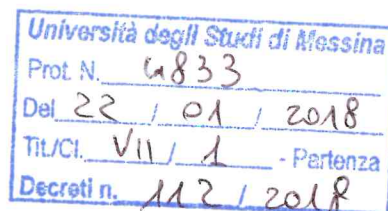 Università degli Studi di Messina
Prot. N. 4833
Del 22 / 01 / 2018
Tit./Cl. VII / 1 - Partenza
Decreti n. 112 / 2018